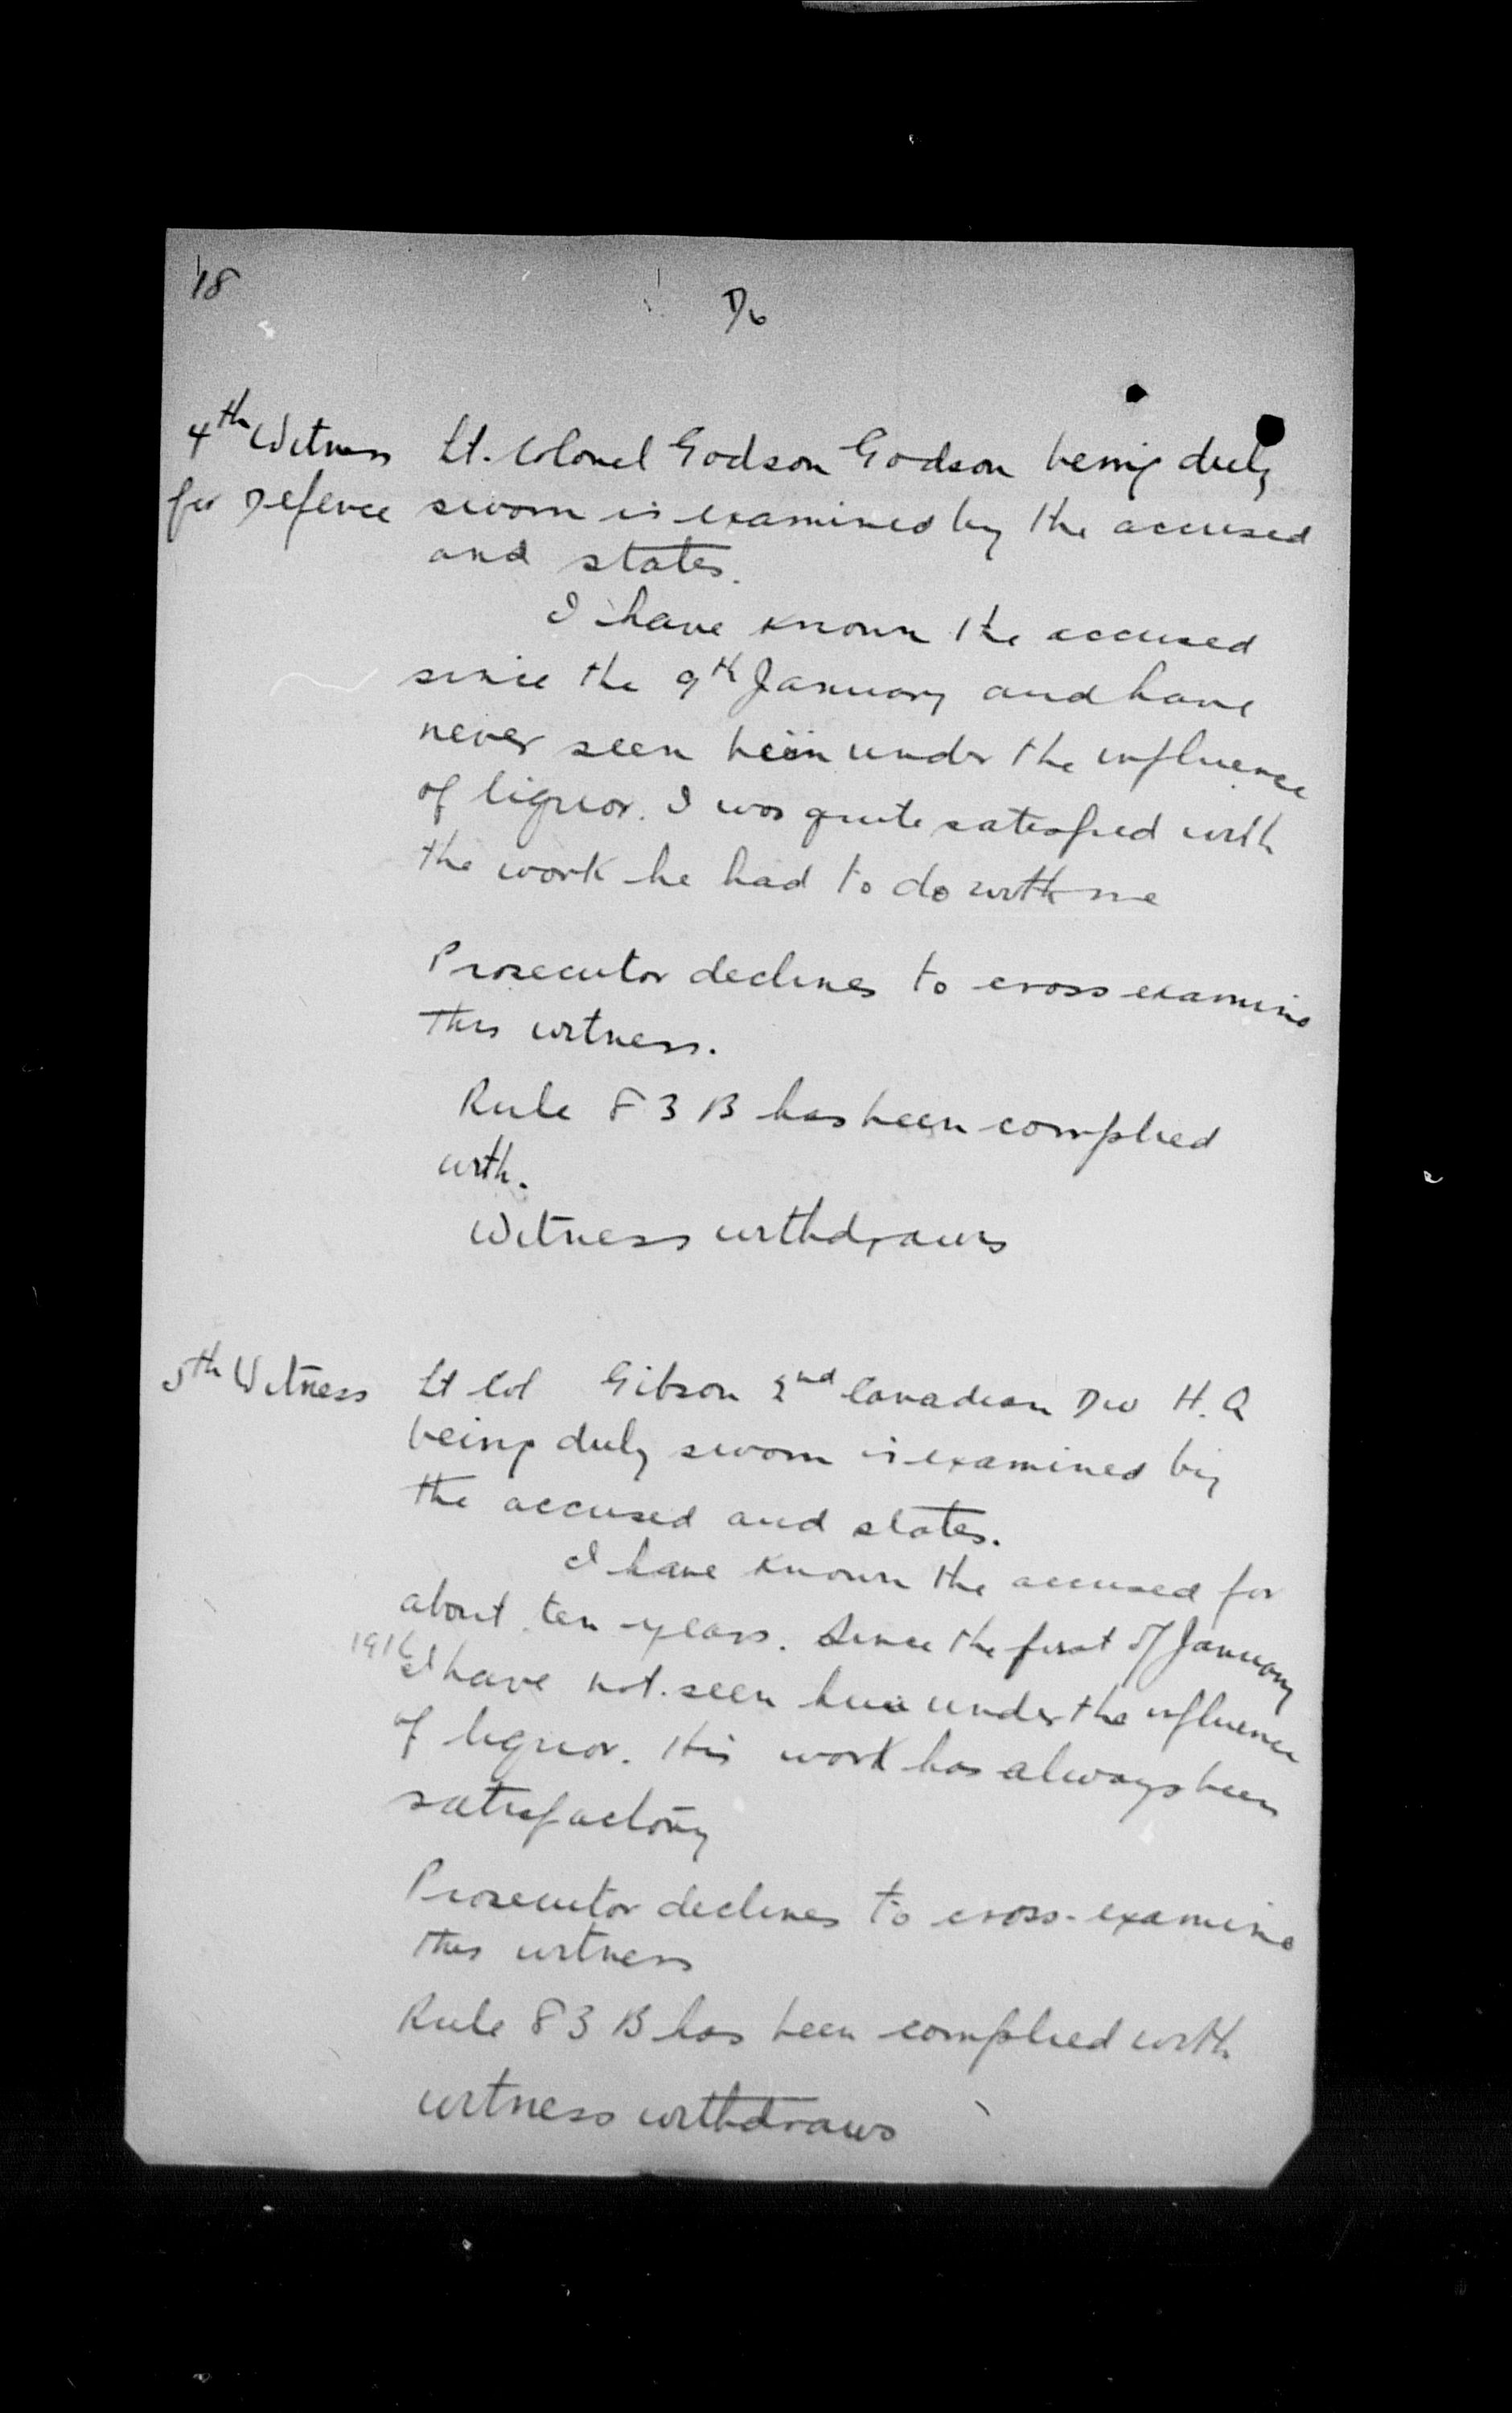 18
D6
4th Witness Lt. Colonel Godson Godson being duly
for Defence sworn is examined by the accused
and states.
I have known the accused
since the 9th January and have
never seen him under the influence
of liquor. I was quite satisfied with
the work he had to do with me
Prosecutor declines to cross examine
this witness.
Rule 83 B has been complied
with.
Witness withdraws
5th Witness Lt Col Gibson 2nd Canadian Div H.Q
being duly sworn is examined by
the accused and states.
I have known the accused for
about ten years. Since the first of January
1916 I have not seen him under the influence
of liquor. His work has always been
satisfactory
Prosecutor declines to cross-examine
this witness
Rule 83 B has been complied with
witness withdraws